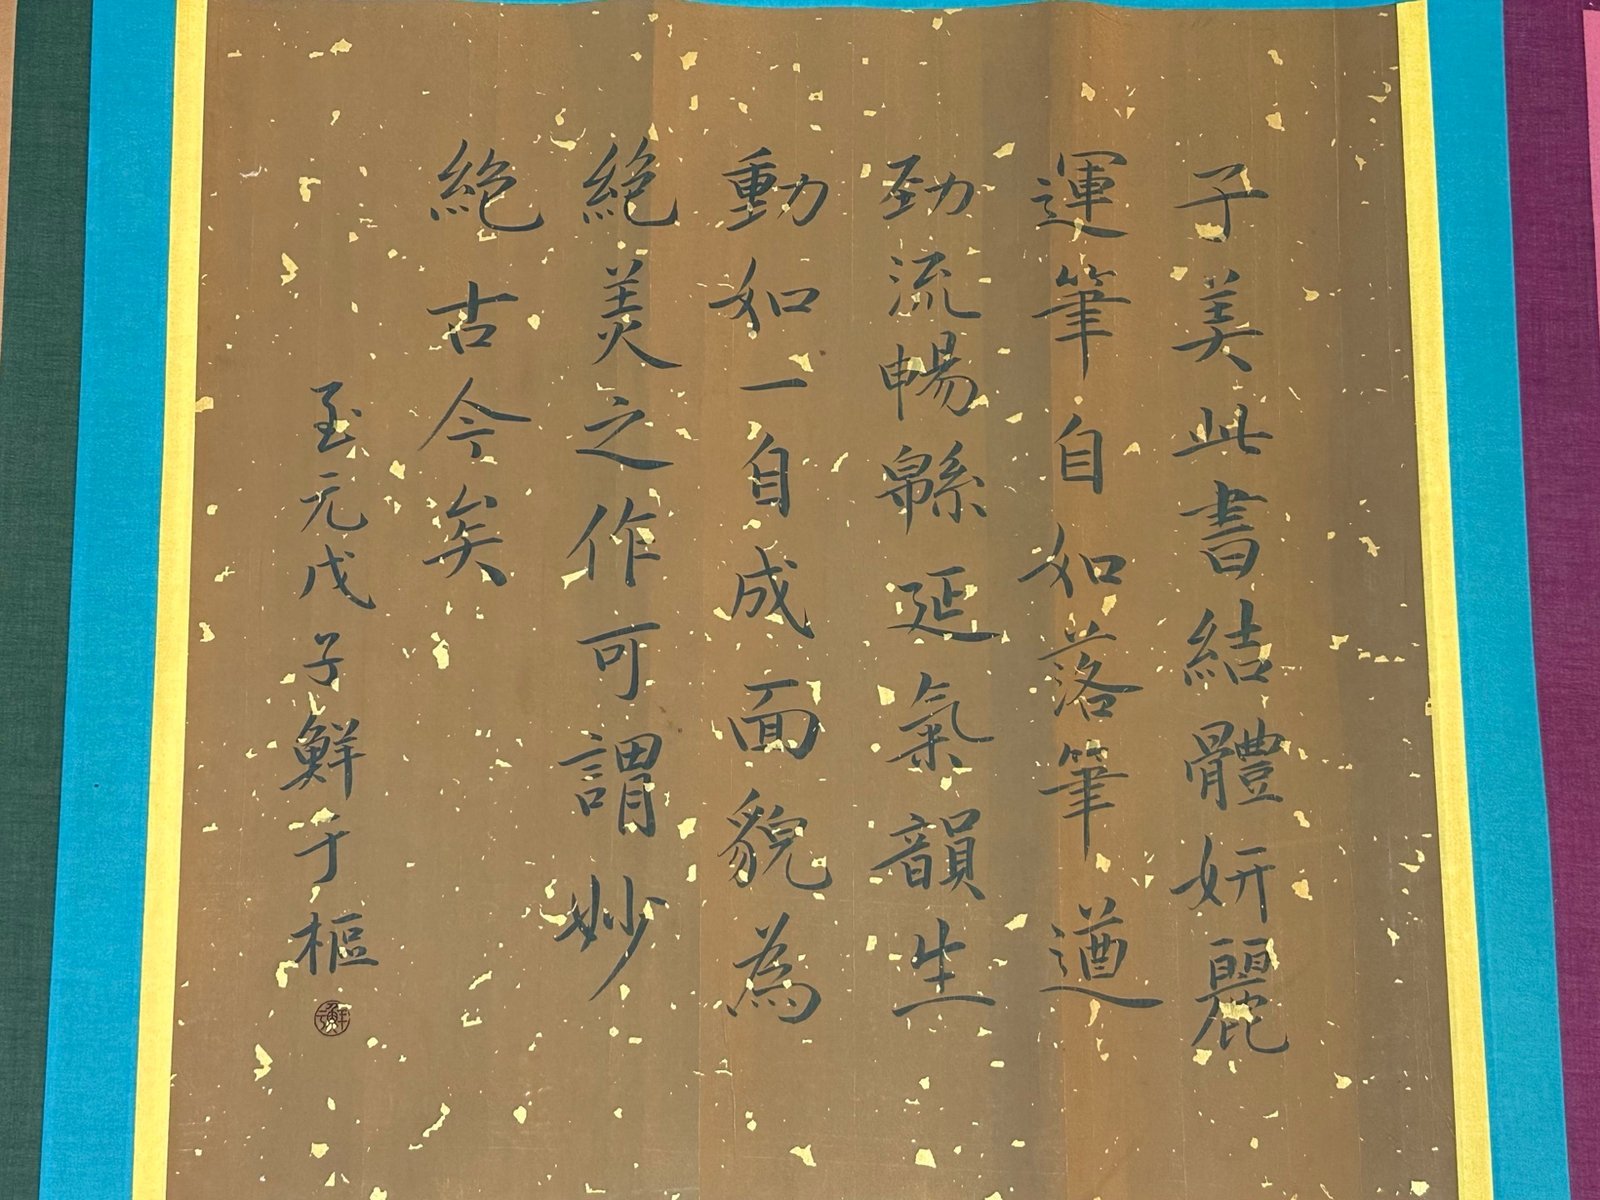 子美此書結體妍麗
運筆自如落筆遒
勁流暢緜延氣韻生
動如一自成面貌為
絕美之作可謂妙
絕古今矣
至元戊子鮮于樞